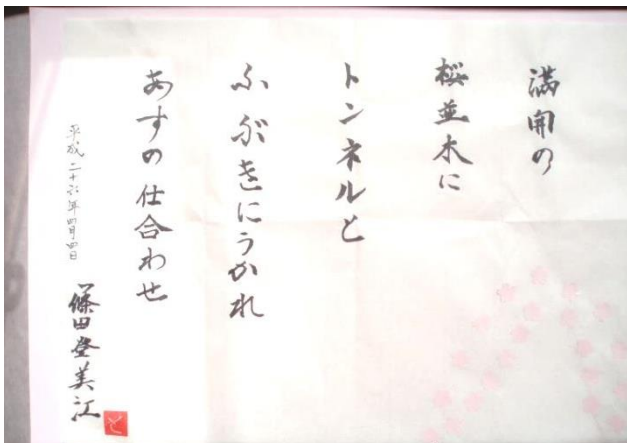 満開の
桜並木に
トンネルと
ふぶきにうかれ
あすの仕合わせ
平成二十六年四月四日
篠田登美江
と